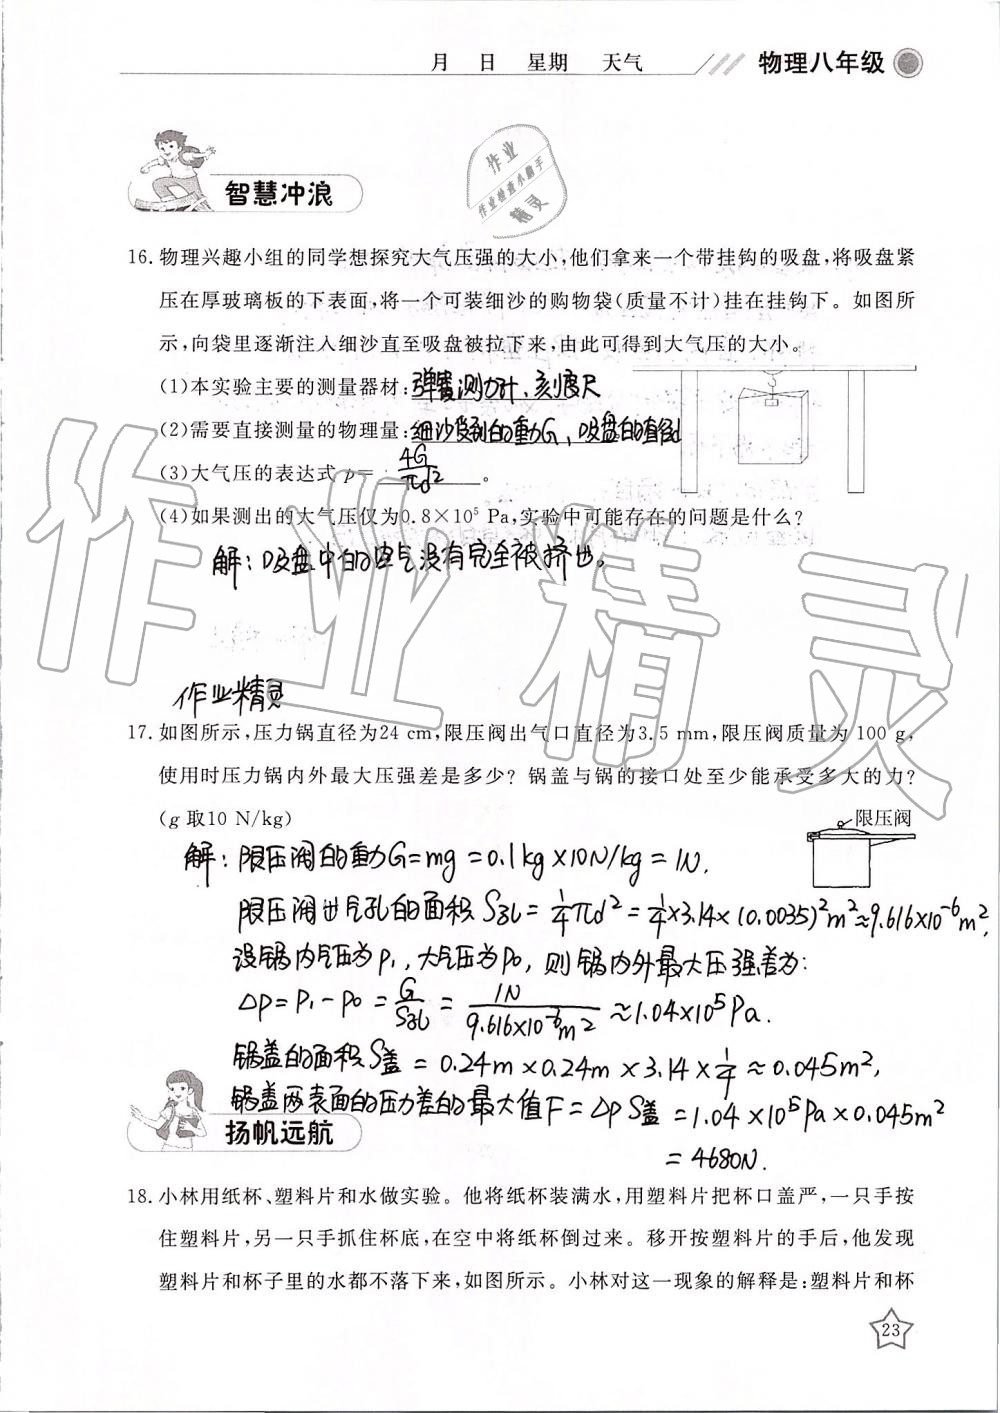 月 日 星期 天气 物理八年级
作业
作业检查小助手
精灵
智慧冲浪
16. 物理兴趣小组的同学想探究大气压强的大小,他们拿来一个带挂钩的吸盘,将吸盘紧
压在厚玻璃板的下表面,将一个可装细沙的购物袋(质量不计)挂在挂钩下。如图所
示,向袋里逐渐注入细沙直至吸盘被拉下来,由此可得到大气压的大小。
(1)本实验主要的测量器材:弹簧测力计、刻度尺
(2)需要直接测量的物理量:细沙受到的重力G,吸盘的直径d
(3)大气压的表达式 p= 4G/πd² 。
(4)如果测出的大气压仅为0.8×10⁵ Pa,实验中可能存在的问题是什么?
解:吸盘中的空气没有完全被挤出。
作业精灵
作业精灵
17. 如图所示,压力锅直径为24 cm,限压阀出气口直径为3.5 mm,限压阀质量为 100 g,
使用时压力锅内外最大压强差是多少? 锅盖与锅的接口处至少能承受多大的力?
(g 取10 N/kg)
限压阀
解:限压阀的重力G=mg=0.1kg×10N/kg=1N,
限压阀出气孔的面积S孔=1/4πd²=1/4×3.14×(0.0035)²m²≈9.616×10⁻⁶m²,
设锅内气压为p₁,大气压为p₀,则锅内外最大压强差为:
Δp=p₁-p₀=G/S孔=1N/9.616×10⁻⁶m²≈1.04×10⁵Pa.
锅盖的面积S盖=0.24m×0.24m×3.14×1/4≈0.045m²,
锅盖两表面的压力差的最大值F=ΔpS盖=1.04×10⁵Pa×0.045m²
=4680N.
扬帆远航
18. 小林用纸杯、塑料片和水做实验。他将纸杯装满水,用塑料片把杯口盖严,一只手按
住塑料片,另一只手抓住杯底,在空中将纸杯倒过来。移开按塑料片的手后,他发现
塑料片和杯子里的水都不落下来,如图所示。小林对这一现象的解释是:塑料片和杯
23